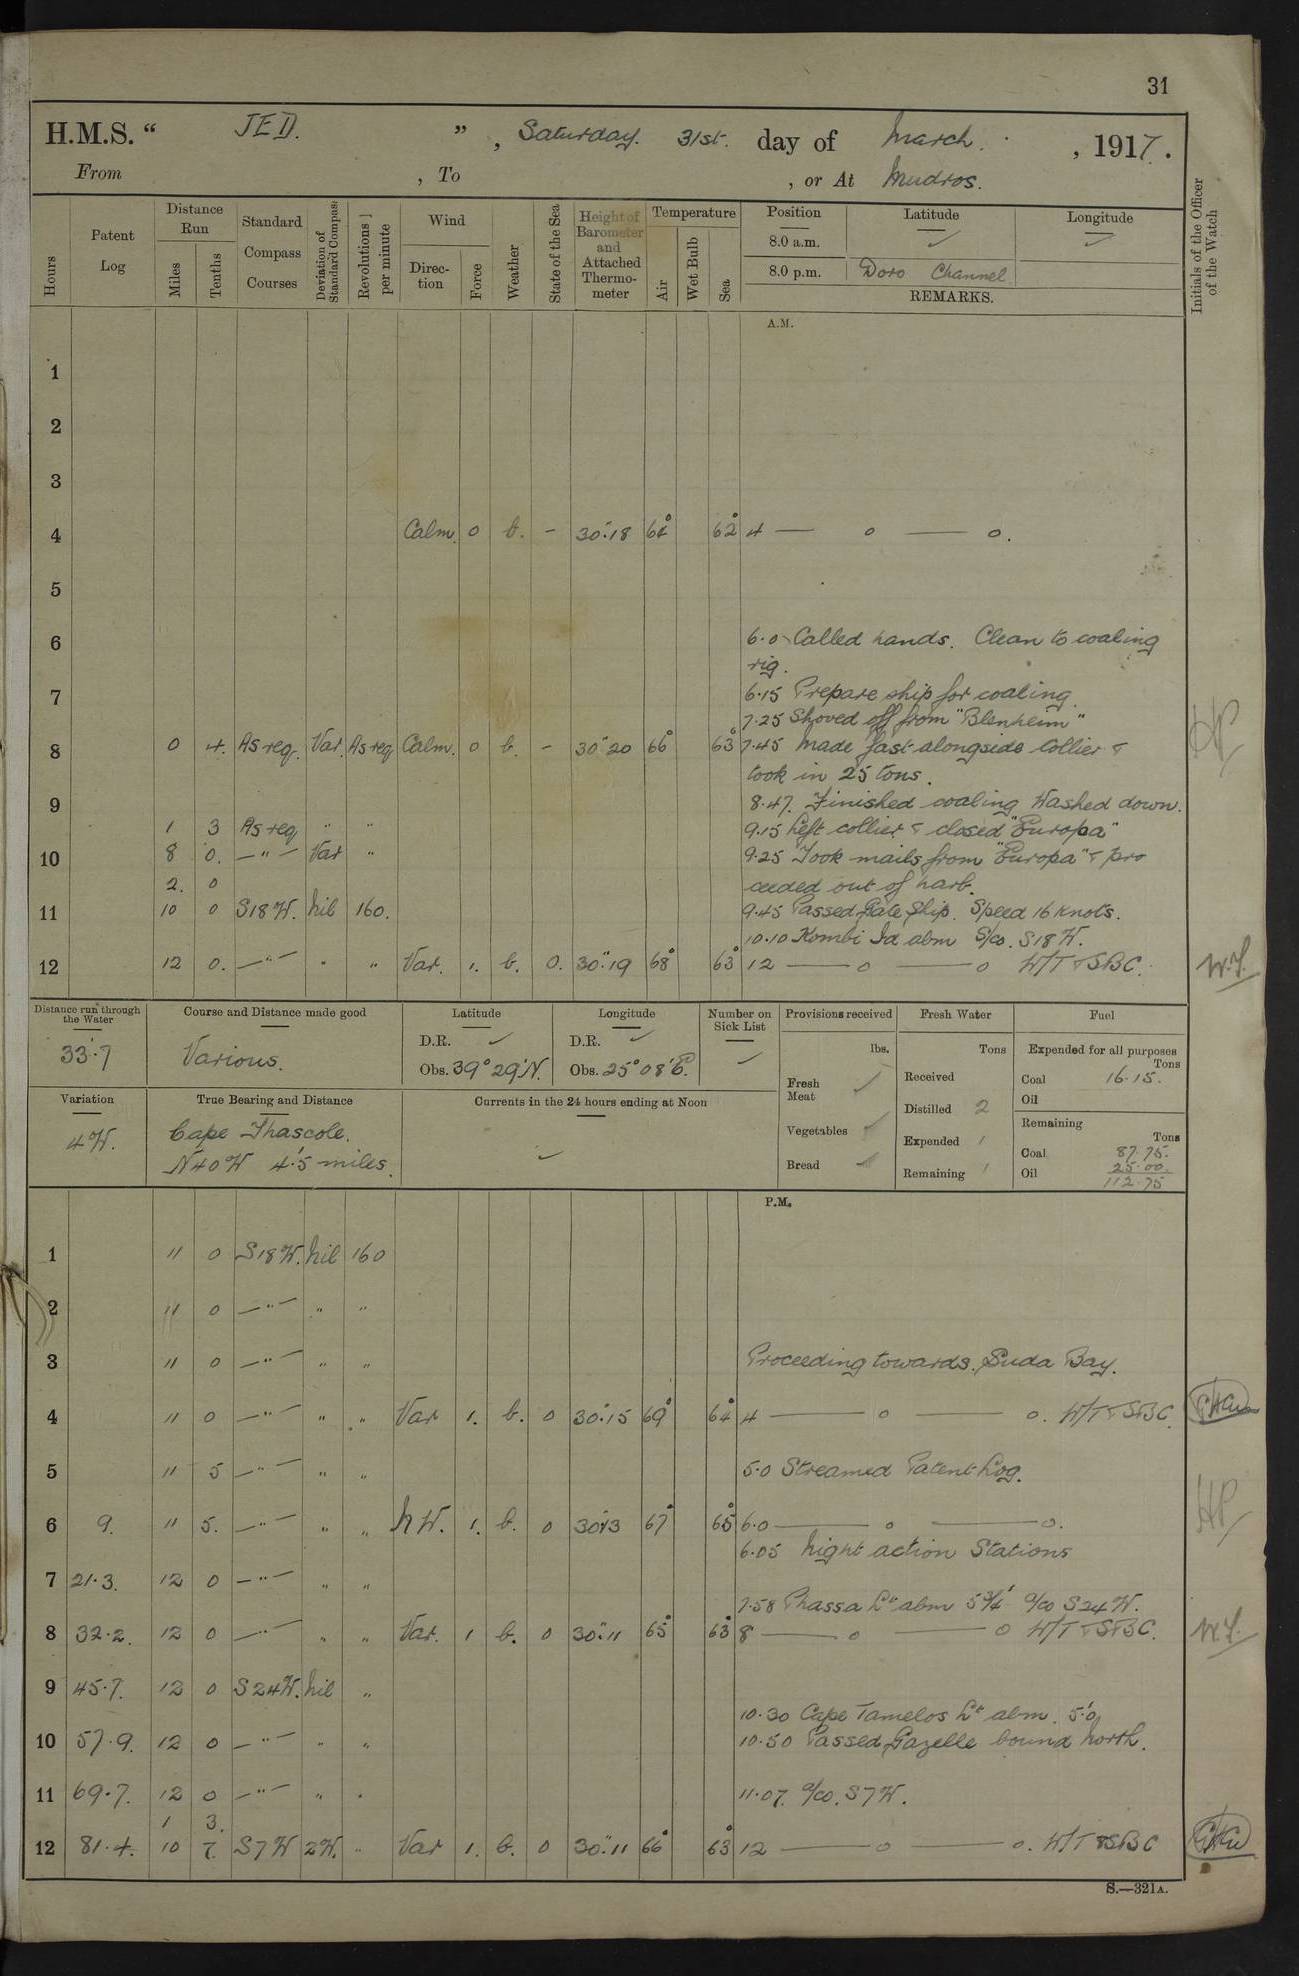 31
H.M.S. " JED. ", Saturday. 31st. day of March. , 1917.
From , To , or At Mudros.
Hours
Patent Log
Distance Run
Miles
Tenths
Standard Compass Courses
Deviation of Standard Compass
Revolutions per minute
Wind
Direction
Force
Weather
State of the Sea
Height of Barometer and Attached Thermometer
Temperature
Air
Wet Bulb
Sea
Position Latitude Longitude
8.0 a.m. ✓ ✓
8.0 p.m. Doro Channel
REMARKS.
Initials of the Officer of the Watch
A.M.
1
2
3
4 Calm. 0 b. - 30".18 64° 62° 4 — o — o.
5
6 6.0 Called hands. Clean to coaling
rig.
7 6.15 Prepare ship for coaling.
7.25 Shoved off from "Blenheim"
8 0 4. As req. Var. As req Calm. 0 b. - 30".20 66° 63° 7.45 Made fast alongside Collier &
took in 25 tons.
9 8.47. Finished coaling Washed down.
1 3 As req " " 9.15 Left collier & closed "Europa"
10 8 0. —"— Var " 9.25 Took mails from "Europa" & pro
2. 0 ceeded out of harb.
11 10 0 S18W. Nil 160. 9.45 Passed Gate Ship. Speed 16 knots.
10.10 Kombi Id abm S/co. S18W.
12 12 0. —"— " " Var. 1. b. 0. 30".19 68° 63° 12 — o — o W/T & SBC.
Distance run through the Water
33'.7
Course and Distance made good
Various.
Latitude
D.R. ✓
Obs. 39° 29'N.
Longitude
D.R. ✓
Obs. 25° 08'E.
Number on Sick List
✓
Provisions received
lbs.
Fresh Meat ✓
Vegetables ✓
Bread ✓
Fresh Water
Tons
Received
Distilled 2
Expended 1
Remaining 1
Fuel
Expended for all purposes
Tons
Coal 16.15.
Oil
Remaining
Tons
Coal 87.75.
Oil 25.00.
112.75
Variation
4W.
True Bearing and Distance
Cape Thascole.
N40W 4'.5 miles.
Currents in the 24 hours ending at Noon
✓
P.M.
1 11 0 S18W. Nil 160
2 11 0 —"— " "
3 11 0 —"— " " Proceeding towards Suda Bay.
4 11 0 —"— " " Var 1. b. 0 30".15 69° 64° 4 — o — o. W/T & SBC.
5 11 5 —"— " " 5.0 Streamed Patent Log.
6 9. 11 5. —"— " " NW. 1. b. 0 30".13 67° 65° 6.0 — o — o.
6.05 Night action Stations
7 21.3. 12 0 —"— " "
7.58 Phassa Lt abm 5¾' a/co S24W.
8 32.2. 12 0 —"— " " Var. 1 b. 0 30".11 65° 63° 8 — o — o W/T & SBC.
9 45.7. 12 0 S24W. Nil "
10.30 Cape Tamelos Lt abm. 5'.0
10 57.9. 12 0 —"— " " 10.50 Passed Gazelle bound North.
11 69.7. 12 0 —"— " " 11.07. a/co. S7W.
1 3.
12 81.4. 10 7. S7W 2W. " Var 1. b. 0 30".11 66° 63° 12 — o — o. W/T & SBC
S.—321A.